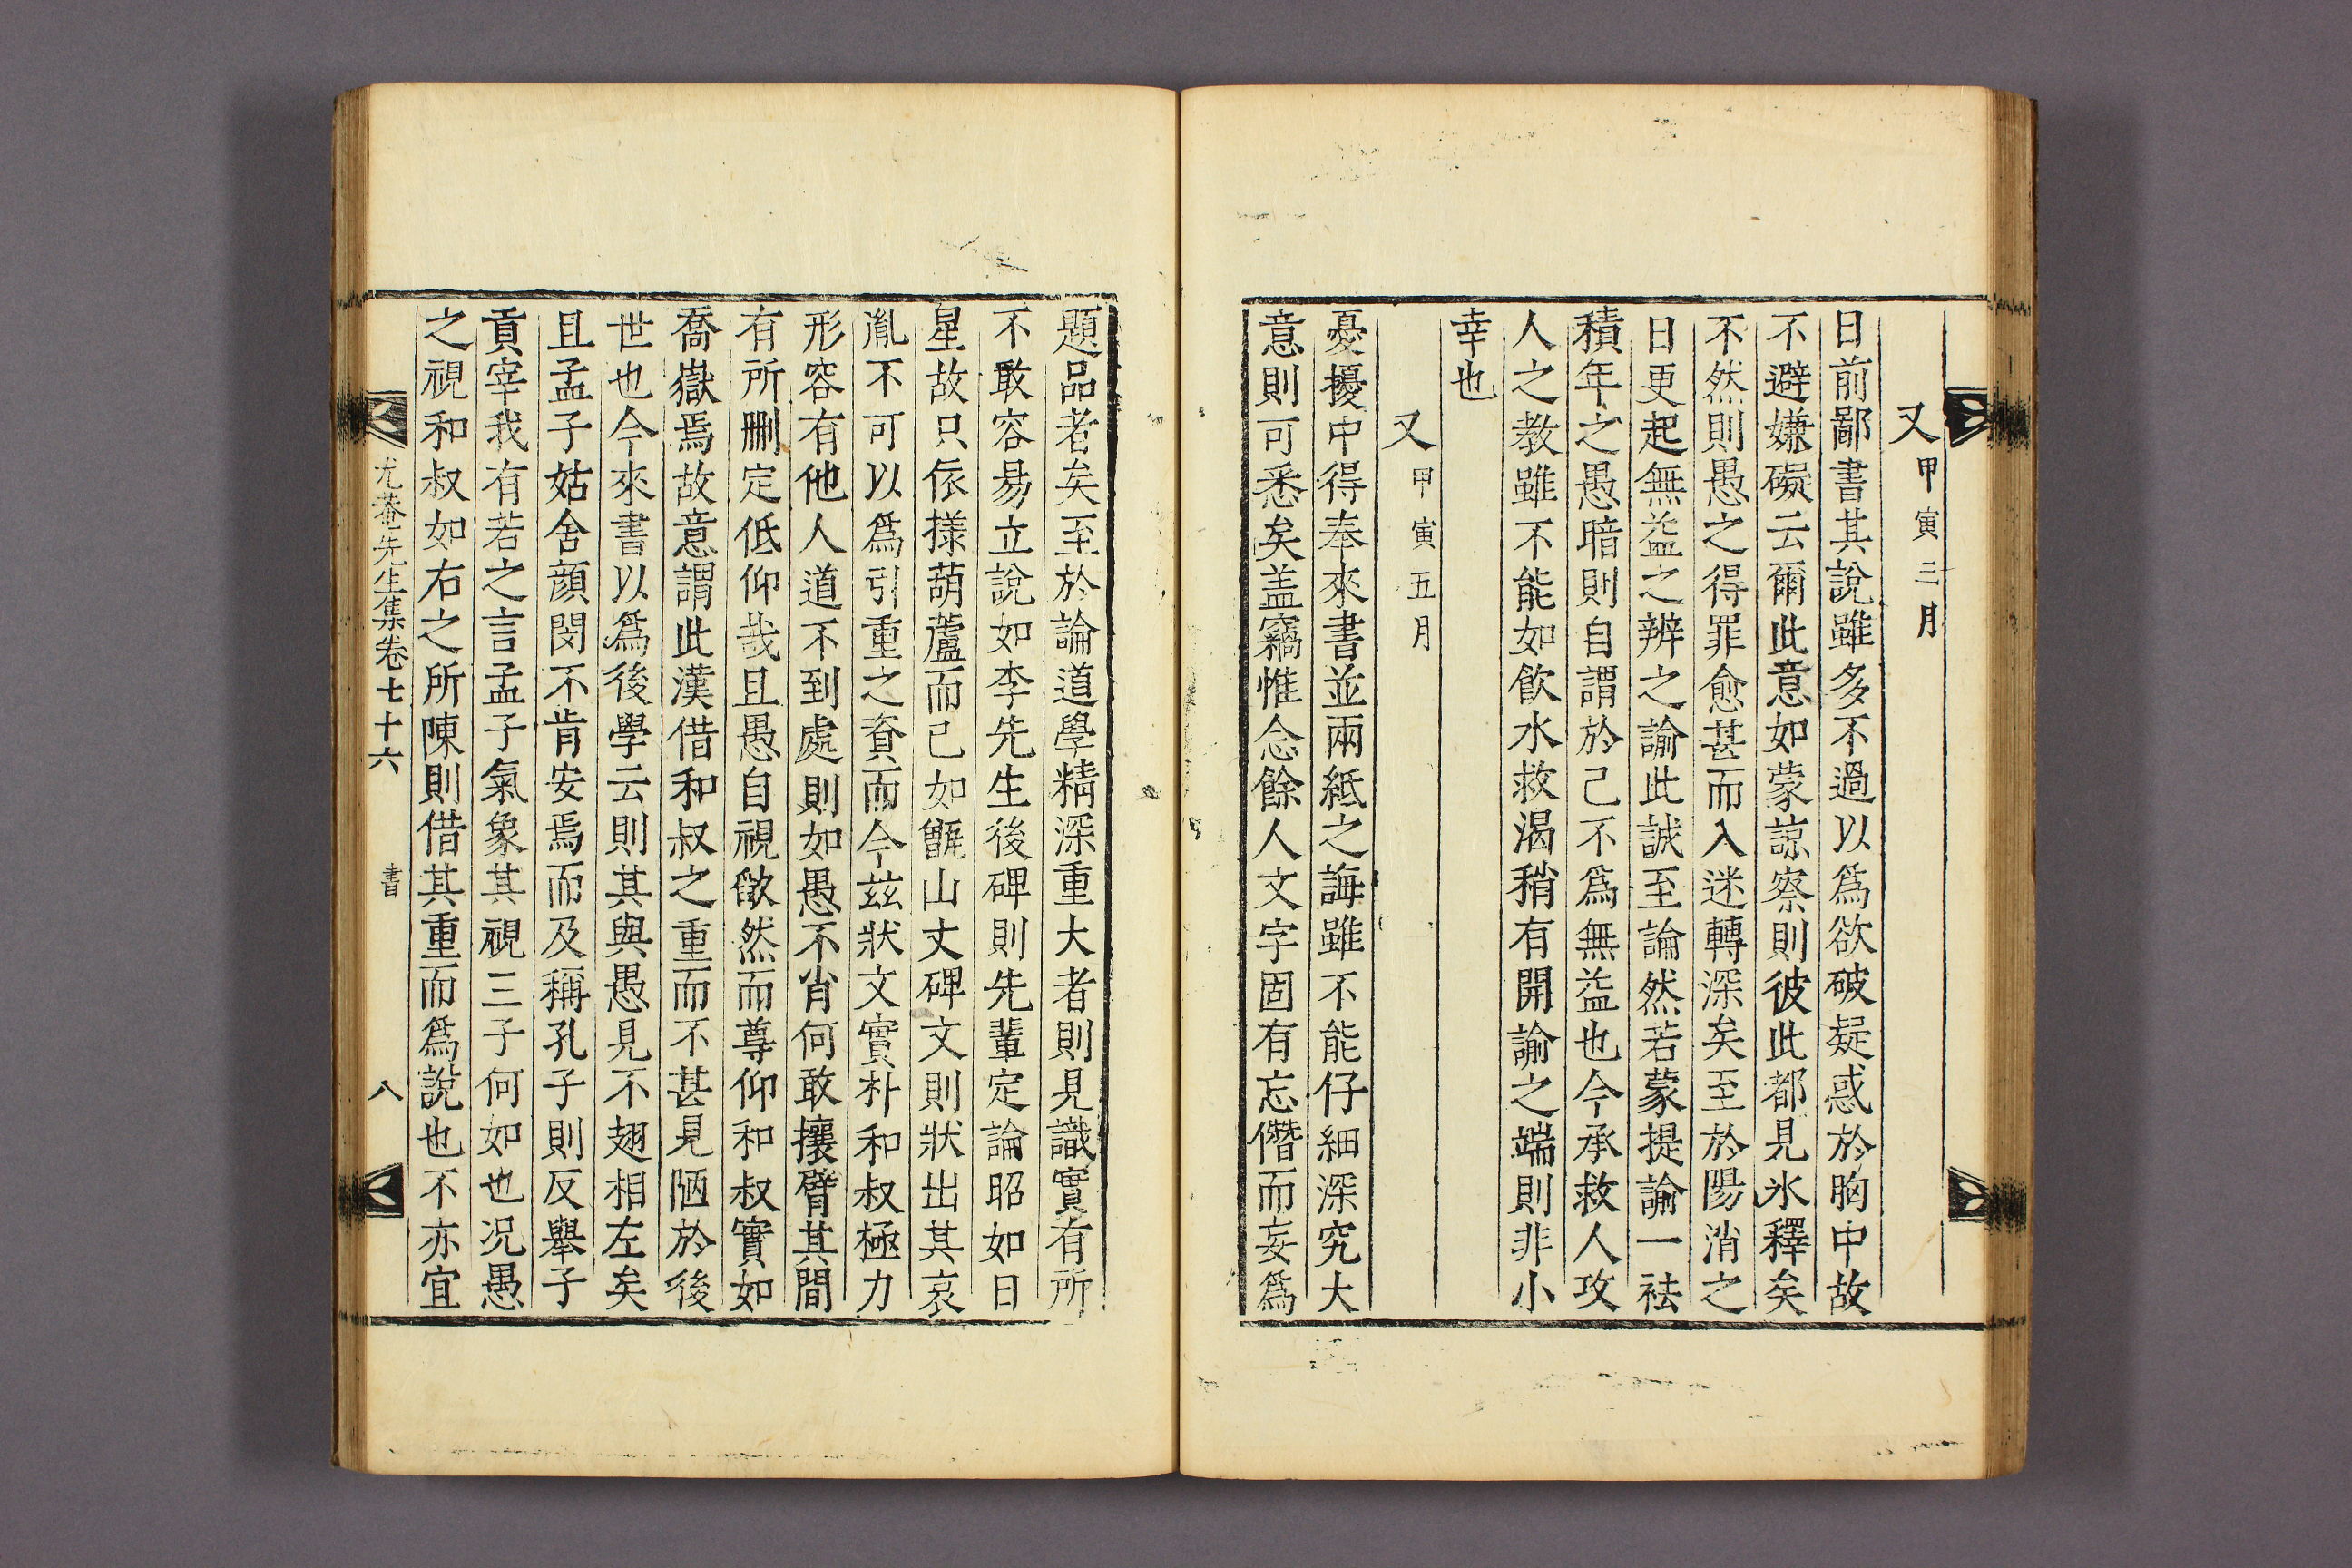 又甲寅三月
日前鄙書其說雖多不過以爲欲破疑惑於胸中故
不避嫌礙云爾此意如蒙諒察則彼此都見氷釋矣
不然則愚之得罪愈甚而入迷轉深矣至於陽消之
日更起無益之辨之諭此誠至論然若蒙提諭一祛
積年之愚暗則自謂於己不爲無益也今承救人攻
人之教雖不能如飮水救渴稍有開諭之端則非小
幸也
又甲寅五月
憂擾中得奉來書並兩紙之誨雖不能仔細深究大
意則可悉矣盖竊惟念餘人文字固有忘僭而妄爲
題品者矣至於論道學精深重大者則見識實有所
不敢容易立說如李先生後碑則先輩定論昭如日
星故只依㨾葫蘆而已如翫山丈碑文則狀出其哀
胤不可以爲引重之資而今玆狀文實朴和叔極力
形容有他人道不到處則如愚不肖何敢攘臂其間
有所刪定低仰哉且愚自視欿然而尊仰和叔實如
喬嶽焉故意謂此漢借和叔之重而不甚見陋於後
世也今來書以爲後學云則其與愚見不翅相左矣
且孟子姑舍顔閔不肯安焉而及稱孔子則反擧子
貢宰我有若之言孟子氣象其視三子何如也況愚
之視和叔如右之所陳則借其重而爲說也不亦宜
尤菴先生集卷七十六 書 八